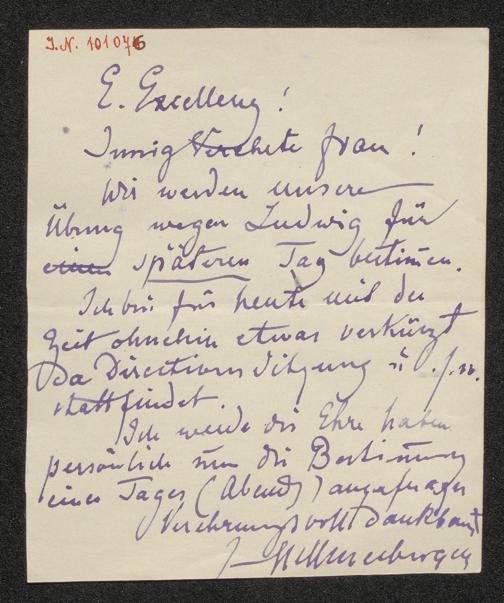 I.N. 101076
E. Excellenz!
Innig Verehrte Frau!
Wir werden unsere
Übung wegen Ludwig für
einen späteren Tag bestimen.
Ich bin für heute mit der
Zeit ohnehin etwas verkürzt
Da Directions Sitzung u. s. w.
stattfindet.
Ich werde die Ehre haben
persönlich um die Bestimung
eines Tages (Abends) anzufragen
Verehrungsvoll Dankbarst
J Hellmesberger